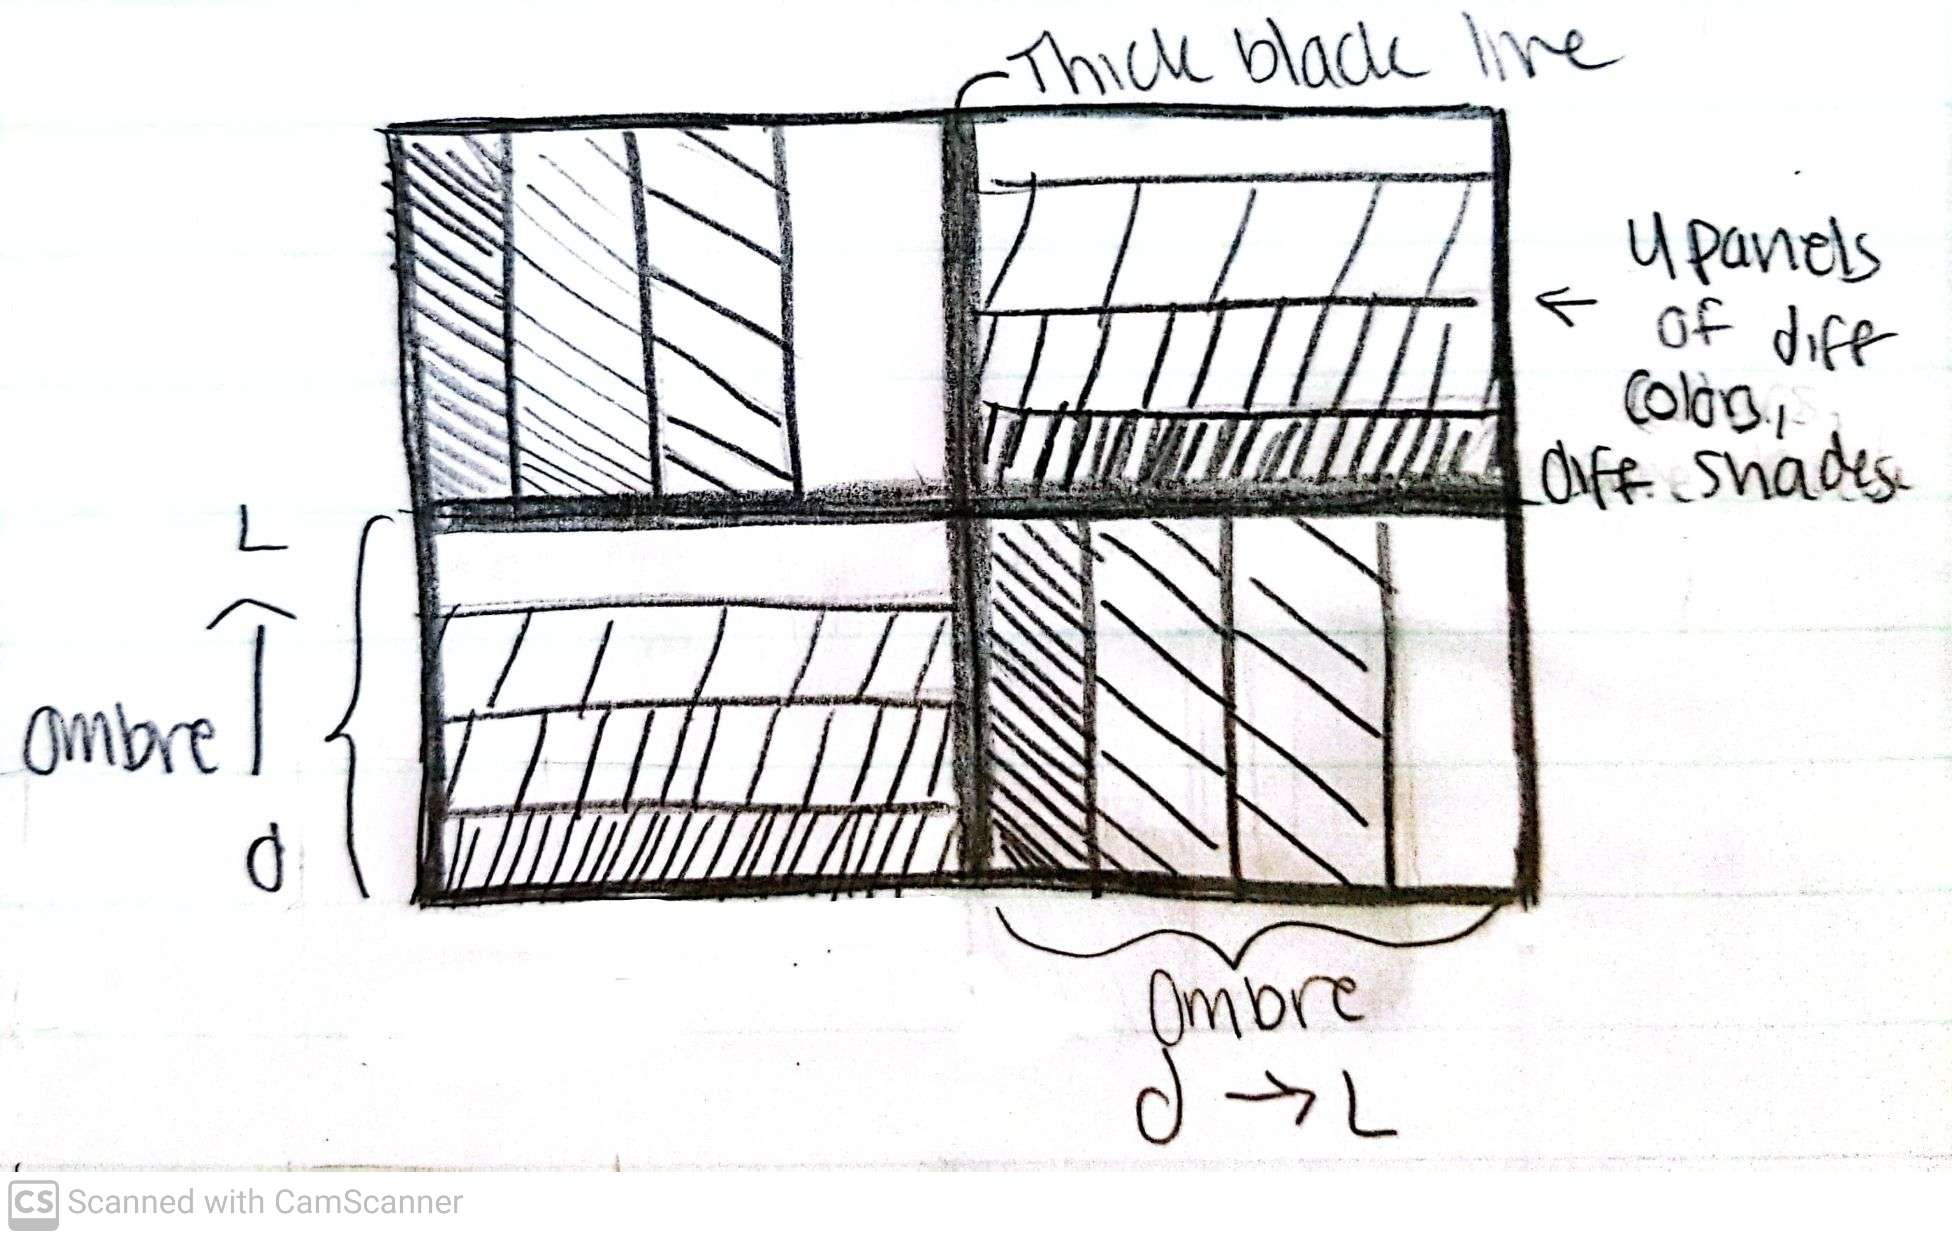 Thick black line
4 panels
of diff
colors,
diff. shades.
L
ombre
d
ombre
d → L
CS Scanned with CamScanner